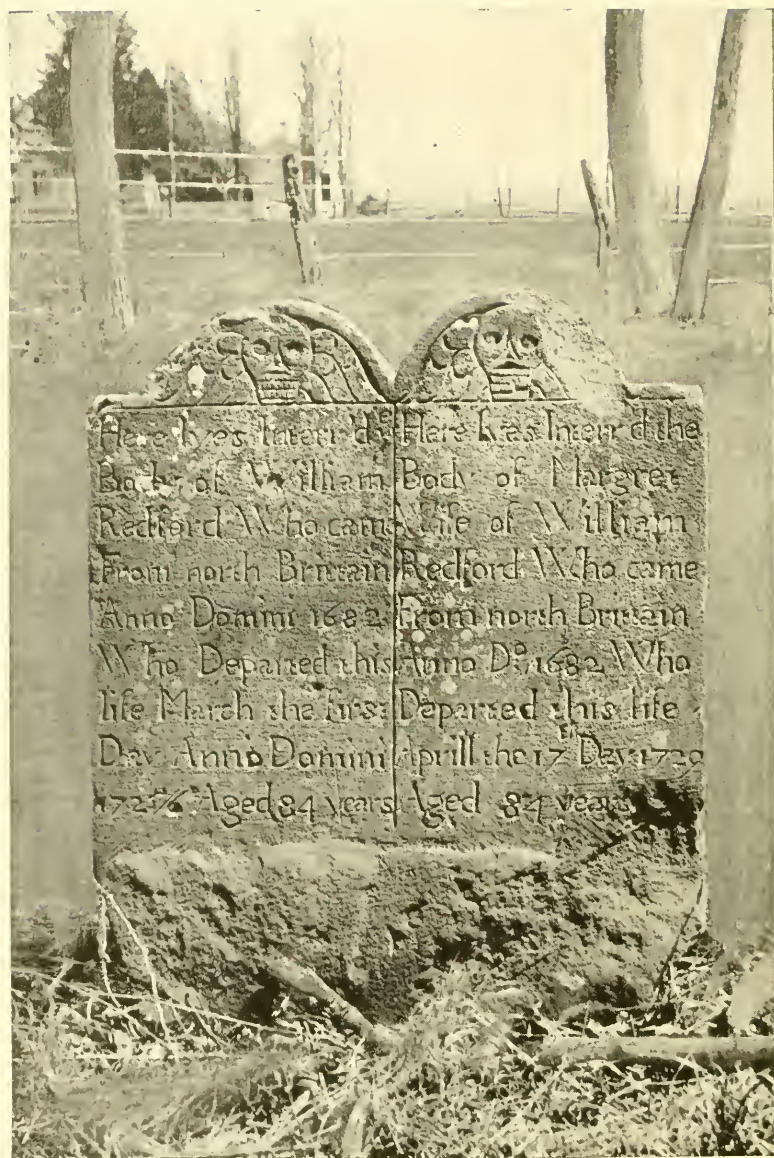 Here Lyes Interr'd ye
Body of William
Redford Who came
From north Brittain
Anno Domini 1682
Who Departed this
life March the first
Day Anno Domini
Aged 84 years
Here Lyes Interr'd the
Body of Margret
Wife of William
Redford Who came
From north Brittain
Anno Do, 1682 Who
Departed this life
Aprill the 17th Day 1729
Aged 84 years